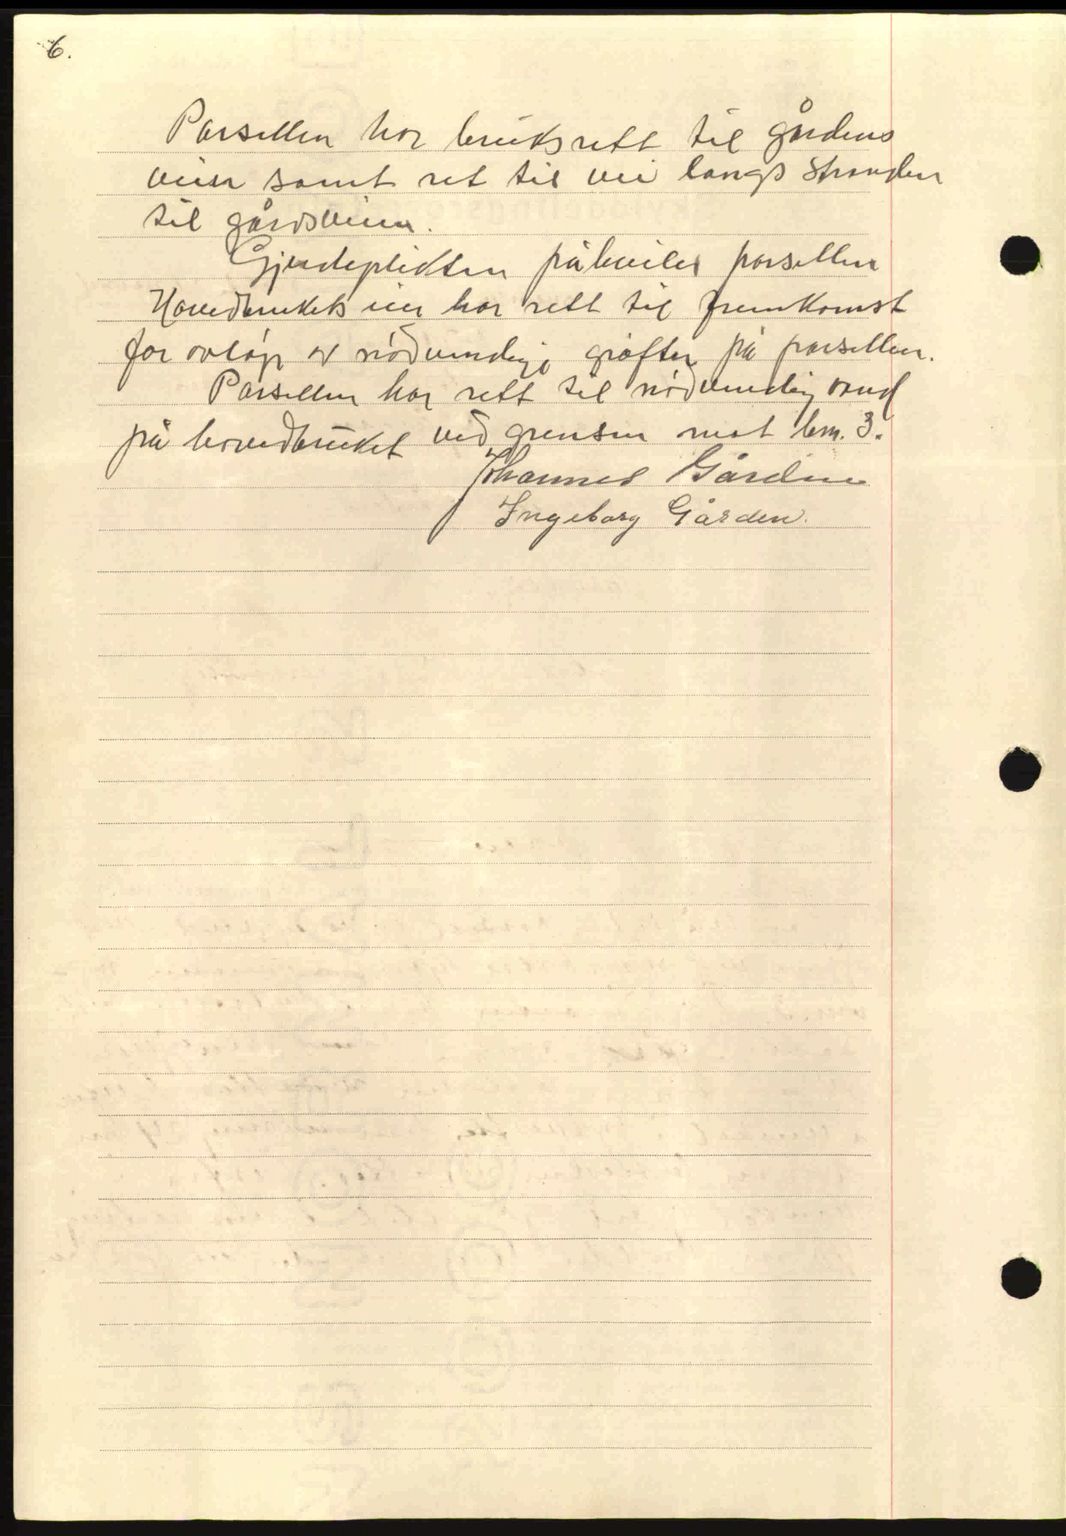 6.
Parsellen har bruksrett til gårdens
veier samt ret til vei langs stranden
til gårdsveien.
Gjerdeplikten påhviler parsellen
Hovedbrukets eier har rett til fremkomst
for avløp av nødvendige grøfter på parsellen.
Parsellen har rett til nødvendig vand
på hovedbruket ved grensen mot bm. 3.
Johannes Gården
Ingeborg Gården.